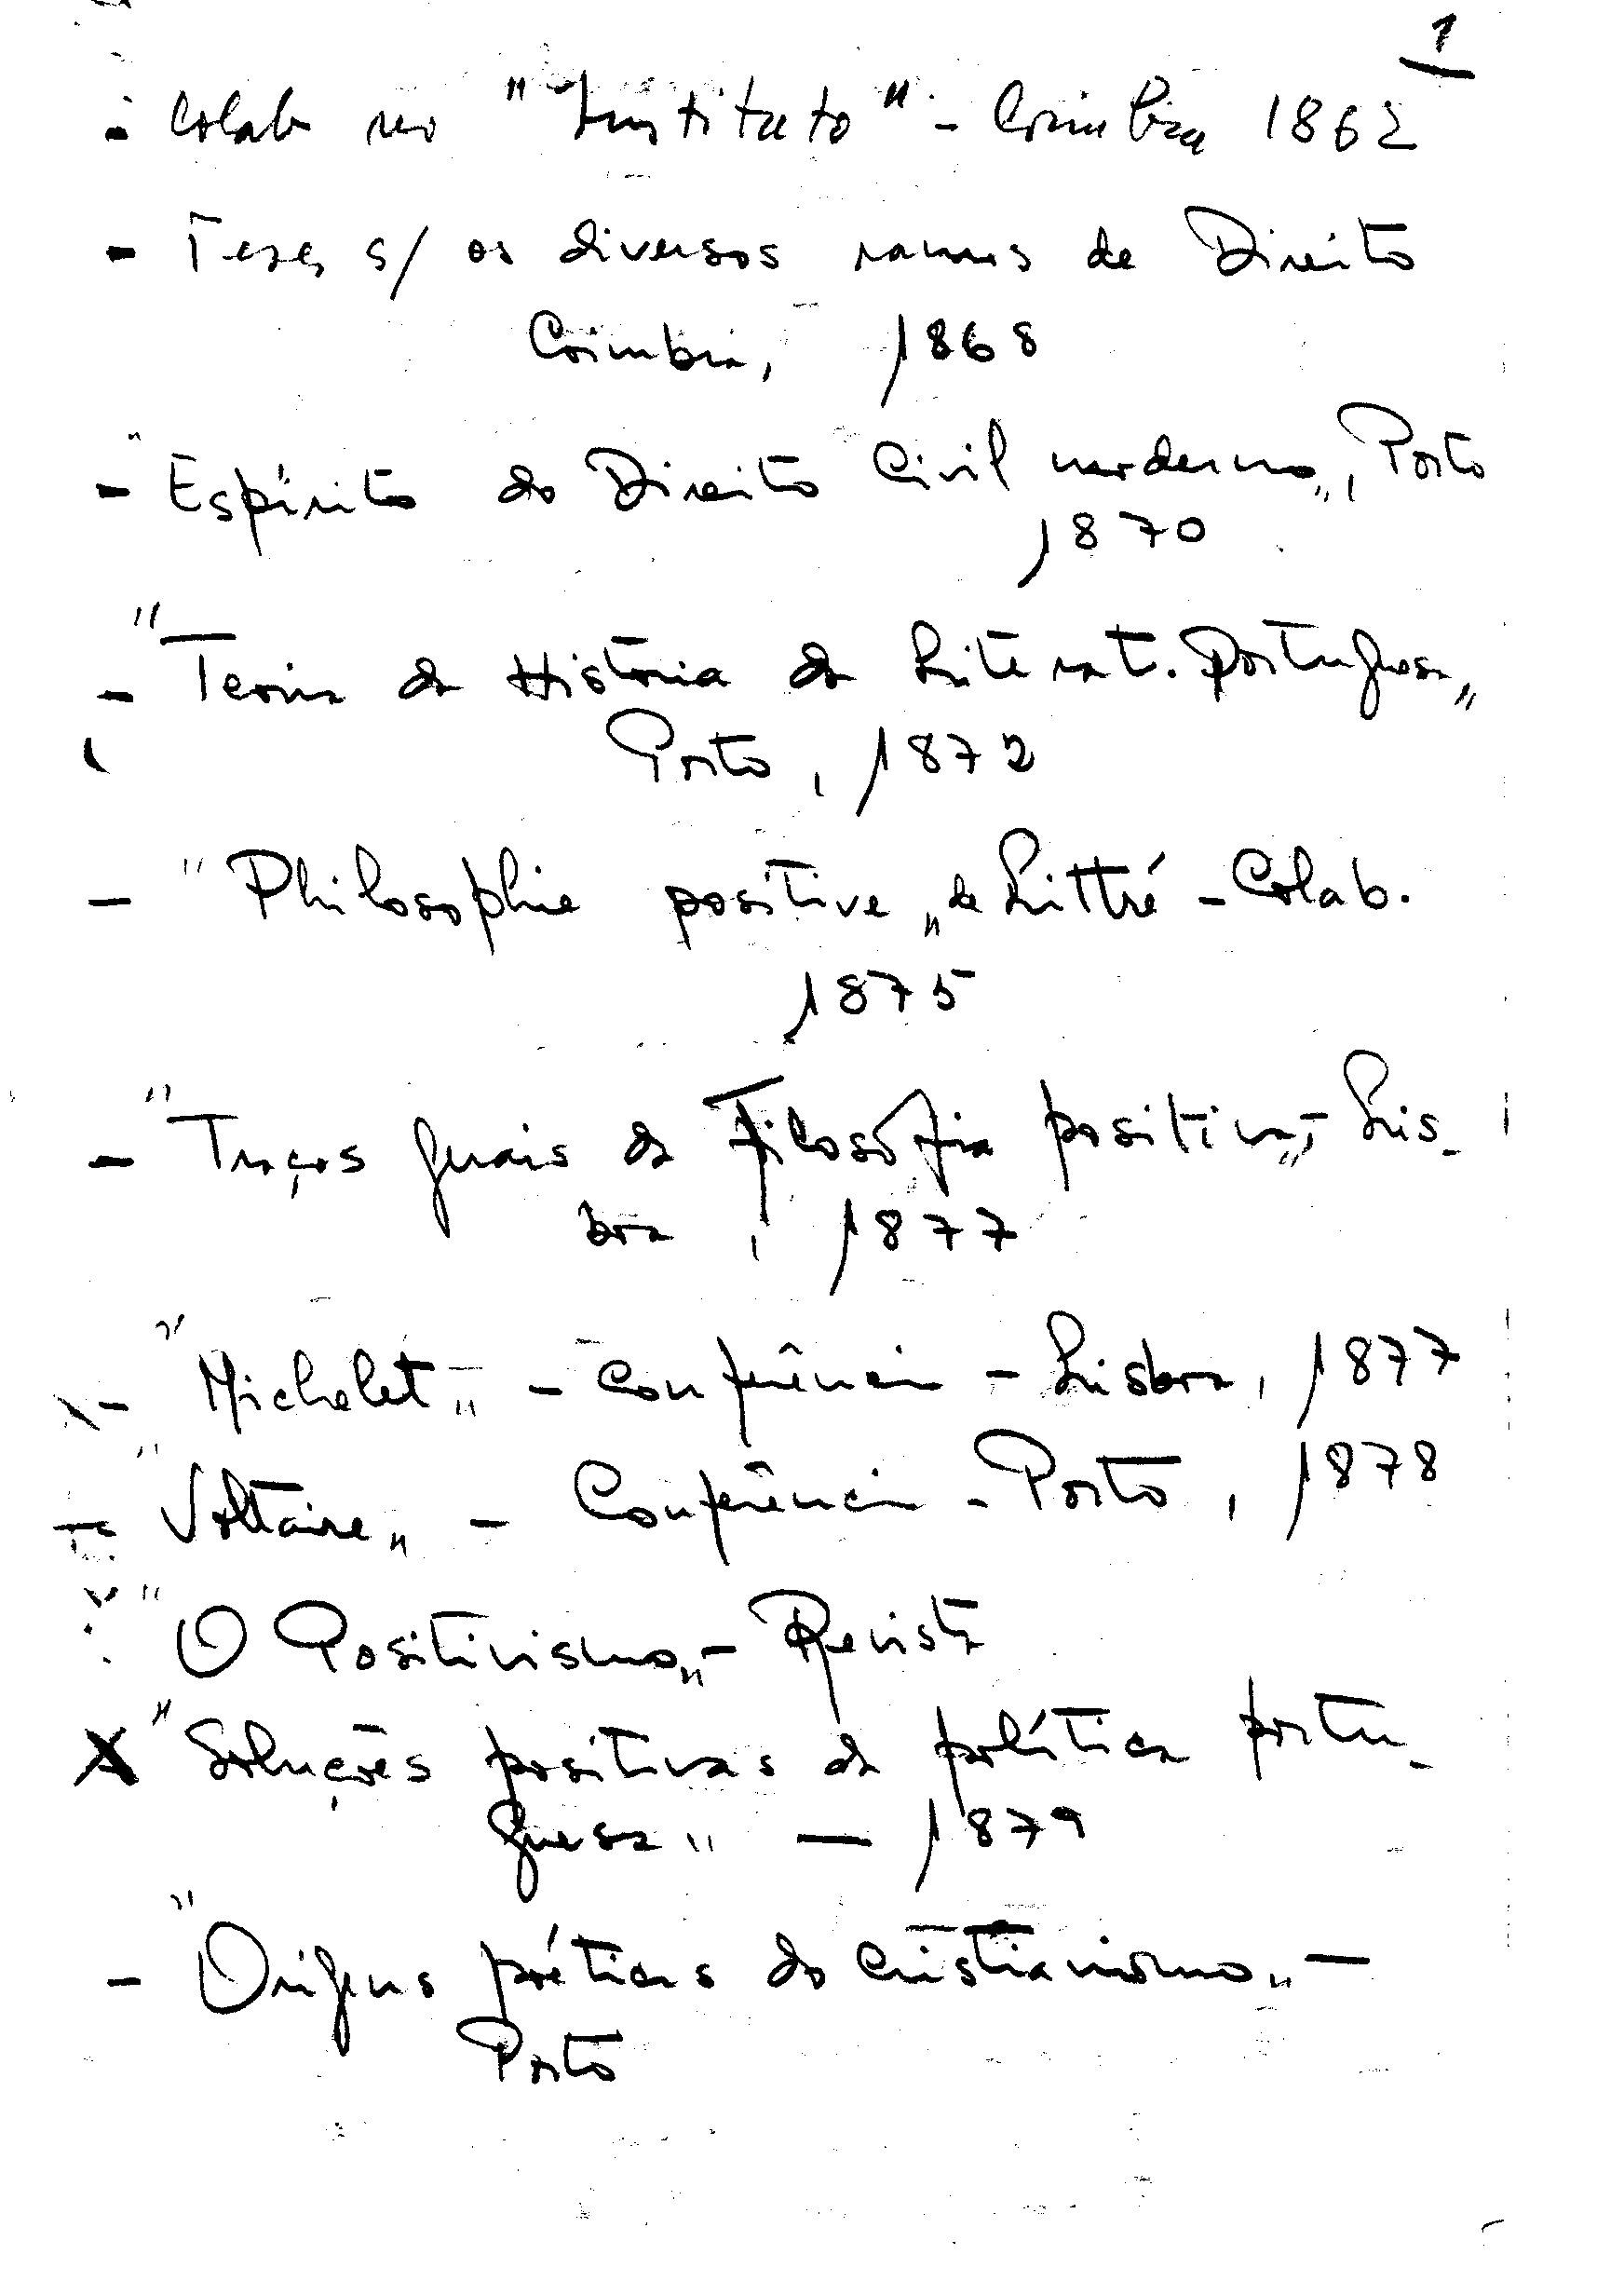 1
- Colab no "Instituto" - Coimbra 1862
- Teses s/ os diversos ramos de Direito
Coimbra, 1868
- "Espírito do Direito Civil moderno", Porto
1870
- "Teoria da História da Literat. Portuguesa"
Porto, 1872
- "Philosophie positive" de Littré - Colab.
1875
- "Traços gerais da Filosofia positiva", - Lis-
boa, 1877
- "Michelet" - Conferência - Lisboa, 1877
- "Voltaire" - Conferência - Porto, 1878
"O Positivismo" - Revista
X "Soluções positivas da política portu-
guesa" - 1879
- "Origens poéticas do Cristianismo" -
Porto